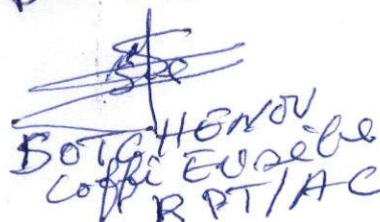 BOTCHENOU
Coffi Eusèbe
RPT/AC